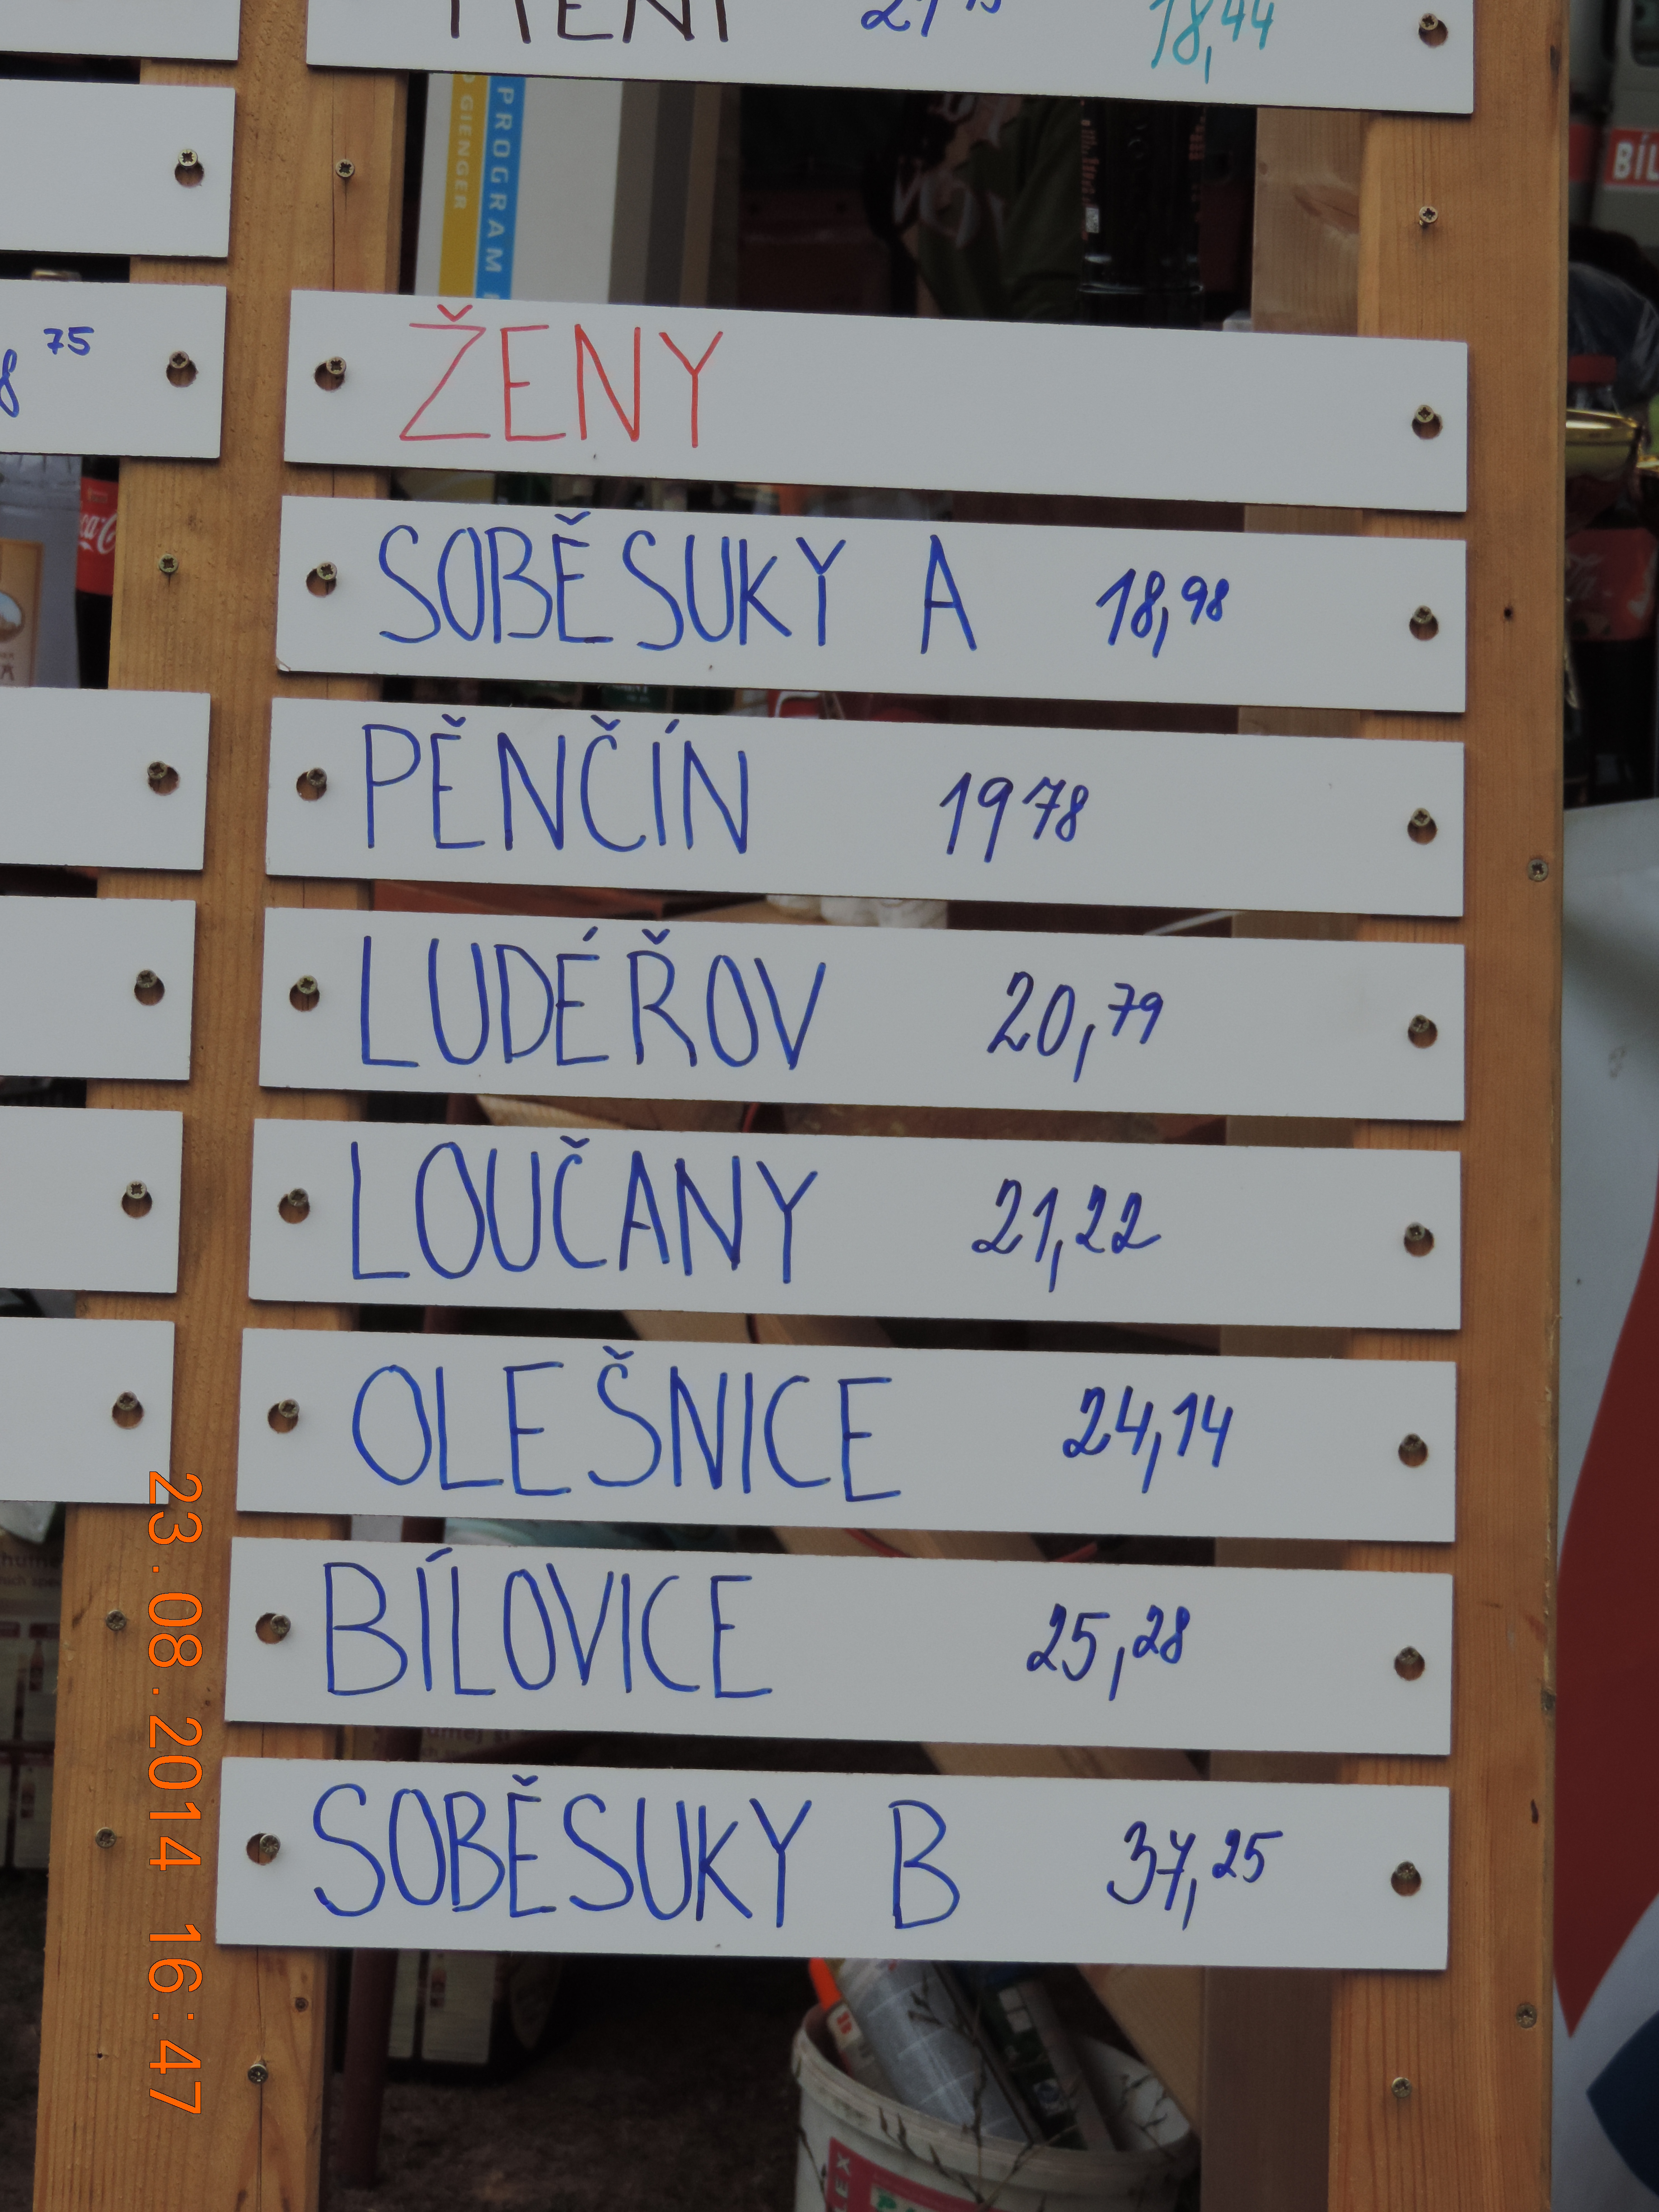 18,44
PROGRAM
GIENGER
BÍL
75
ŽENY
SOBĚSUKY A 18,98
PĚNČÍN 19 78
LUDÉŘOV 20,79
LOUČANY 21,22
OLEŠNICE 24,14
BÍLOVICE 25,28
SOBĚSUKY B 37,25
23.08.2014 16:47